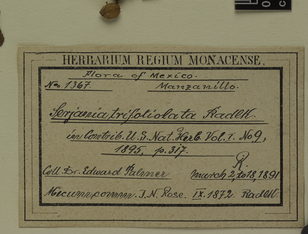 HERBARIUM REGIUM MONACENSE.
Flora of Mexico.
No. 1367. Manzanillo.
Serjania trifoliolata Radlk.
in Contrib. U.S. Nat. Herb. Vol. 1. No 9,
1895, p. 317.
R.
Coll. Dr. Edward Palmer March 2, to 18, 1891
J. N. Rose. IX. 1872 Radlk.